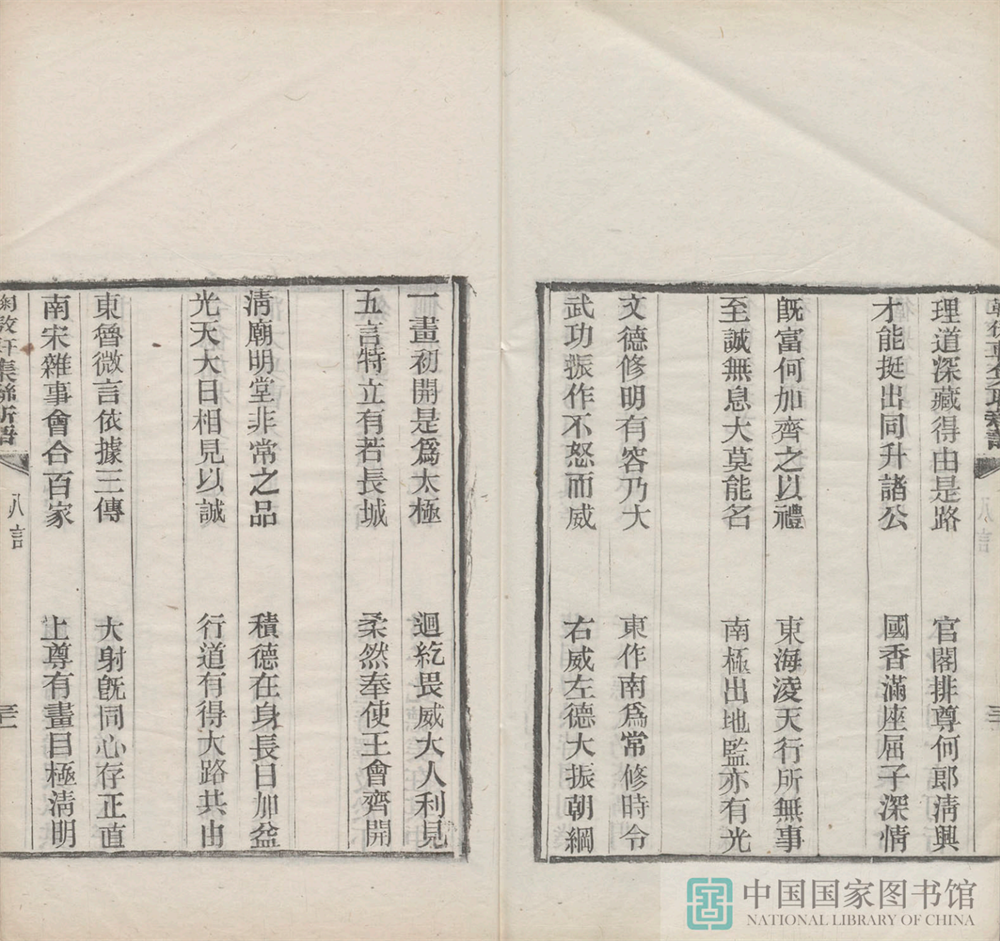 理道深藏得由是路　官閣排尊何郎淸興
才能挺出同升諸公　國香滿座屈子深情
旣富何加齊之以禮　東海淩天行所無事
至誠無息大莫能名　南極出地監亦有光
文德修明有容乃大　東作南爲常修時令
武功振作不怒而威　右威左德大振朝綱
一畫初開是爲太極　迴紇畏威大人利見
五言特立有若長城　柔然奉使王會齊開
淸廟明堂非常之品　積德在身長日加益
光天大日相見以誠　行道有得大路共由
東魯微言依據三傳　大射旣同心存正直
南宋雜事會合百家　上尊有畫目極淸明
集聯新語　八言
中国国家图书馆
NATIONAL LIBRARY OF CHINA